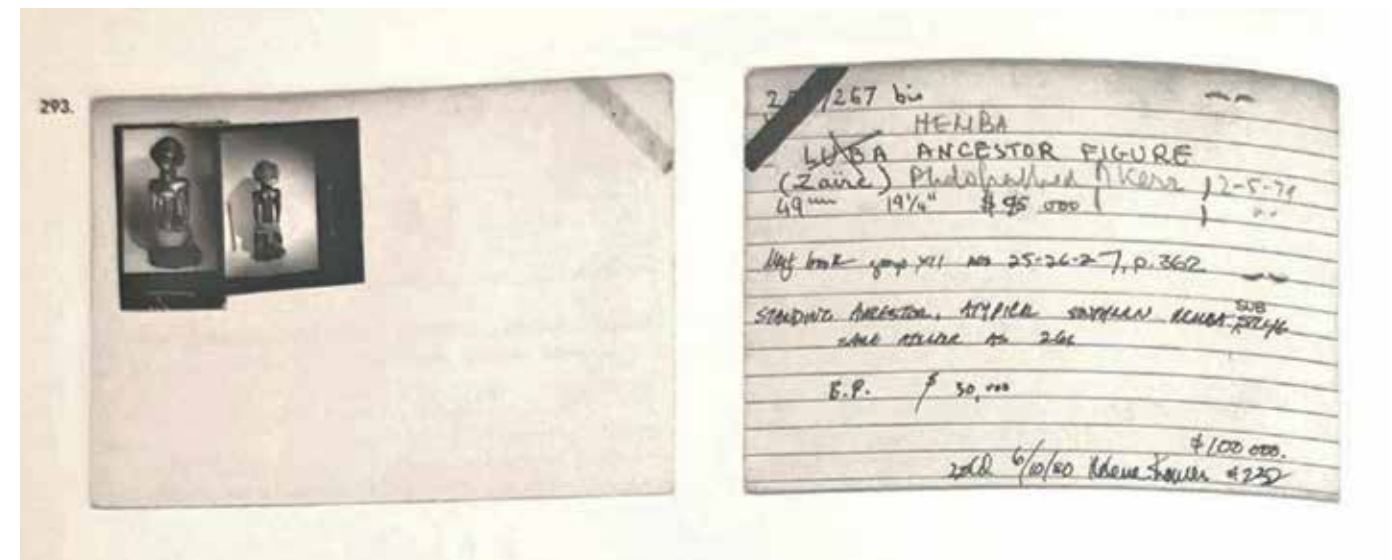 293.
/267 bis
HEMBA
LUBA ANCESTOR FIGURE
(Zaïre) Photographed A Kerr 12-5-79
49 19¼" $ 95 000
book group XII nos 25-26-27, p. 362
STANDING ANCESTOR, ATYPICAL SOUTHERN HEMBA SUB STYLE
SAME ATELIER AS
B.P. $ 30,000
$100 000.
sold 6/10/80